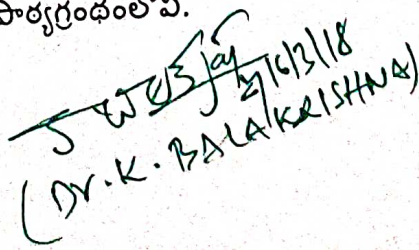 పాఠ్యగ్రంథంలోవి.
16/3/18
(Dr. K. BALAKRISHNA)